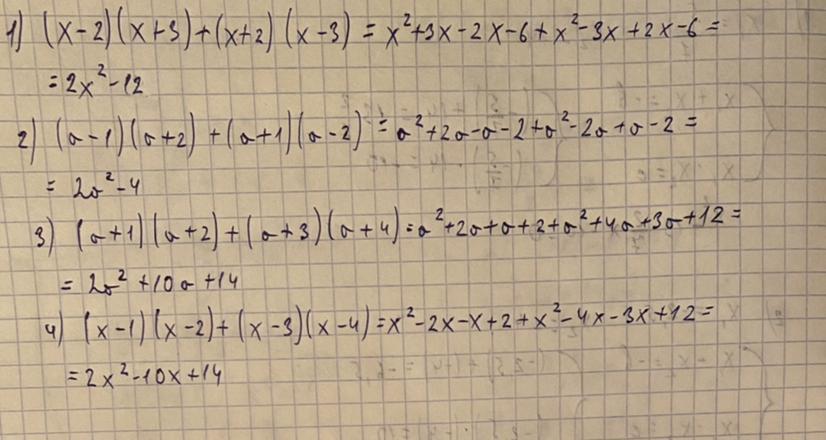 1) (x-2)(x+3)+(x+2)(x-3) = x²+3x-2x-6+x²-3x+2x-6=
=2x²-12
2) (a-1)(a+2)+(a+1)(a-2)=a²+2a-a-2+a²-2a+a-2=
= 2a²-4
3) (a+1)(a+2)+(a+3)(a+4)=a²+2a+a+2+a²+4a+3a+12=
= 2a²+10a+14
4) (x-1)(x-2)+(x-3)(x-4)=x²-2x-x+2+x²-4x-3x+12=
=2x²-10x+14